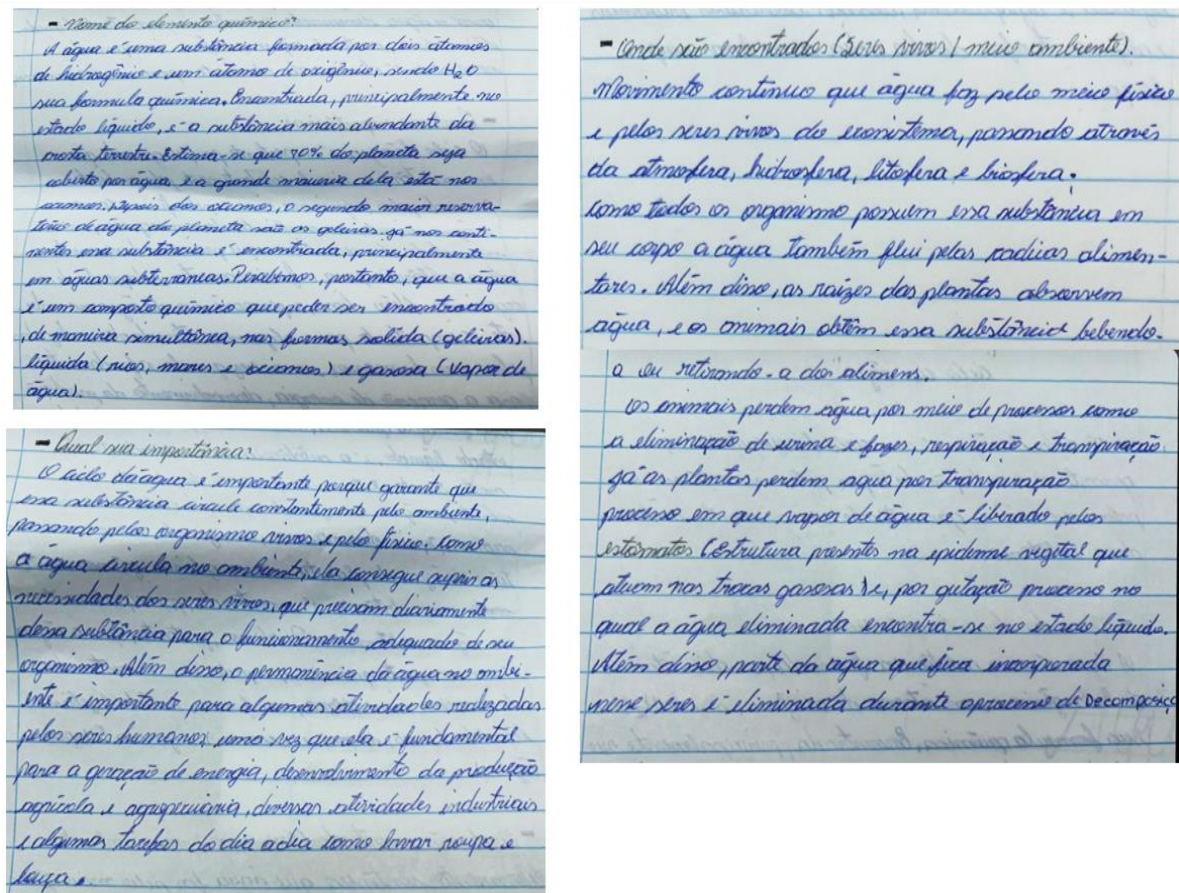 - Nome do elemento químico:
A água é uma substância formada por dois átomos
de hidrogênio e um átomo de oxigênio, sendo H₂O
sua formula química. Encontrada, principalmente no
estado líquido, é a substância mais abundante da
crosta terrestre. Estima-se que 70% do planeta seja
coberto por água, e a grande maioria dela está nos
oceanos. Depois dos oceanos, o segundo maior reserva-
tório de água do planeta são as geleiras. Já nos conti-
nentes essa substância é encontrada, principalmente
em águas subterraneas. Percebemos, portanto, que a água
é um composto químico que poder ser encontrado
, de maneira simultânea, nas formas solida (geleiras).
líquida (rios, mares e oceanos) e gasosa (vapor de
água).
- Qual sua importância:
O ciclo da água é importante porque garante que
essa substância circule constantemente pelo ambiente,
passando pelos organismo vivos e pelo físico. Como
a água circula no ambiente, ela consegue suprir as
necessidades dos seres vivos, que precisam diariamente
dessa substância para o funcionamento adequado de seu
organismo. Além disso, a permanência da água no ambi-
ente é importante para algumas atividades realizadas
pelos seres humanos, uma vez que ela é fundamental
para a geração de energia, desenvolvimento da produção
agrícola e agropecuária, diversas atividades industriais
e algumas tarefas do dia a dia como lavar roupa e
louça.
- Onde são encontrados (Seres vivos / meio ambiente).
Movimento contínuo que água faz pelo meio físico
e pelos seres vivos do ecosistema, passando através
da atmosfera, hidrosfera, litosfera e biosfera.
Como todos os organismo possuem essa substância em
seu corpo a água também flui pelas cadeias alimen-
tares. Além disso, as raízes das plantas absorvem
água, e os animais obtêm essa substância bebendo-
a ou retirando-a dos alimens.
Os animais perdem água por meio de processos como
a eliminação de urina e fezes, respiração e transpiração.
Já as plantas perdem agua por transpiração
processo em que vapor de água é liberado pelos
estômatos (Estrutura presentes na epideme vegetal que
atuem nas trocas gasosas) e, por gutação processo no
qual a água eliminada encontra-se no estado líquido.
Além disso, parte da água que fica incorporada
nesse seres é eliminada durante o processo de Decomposiç